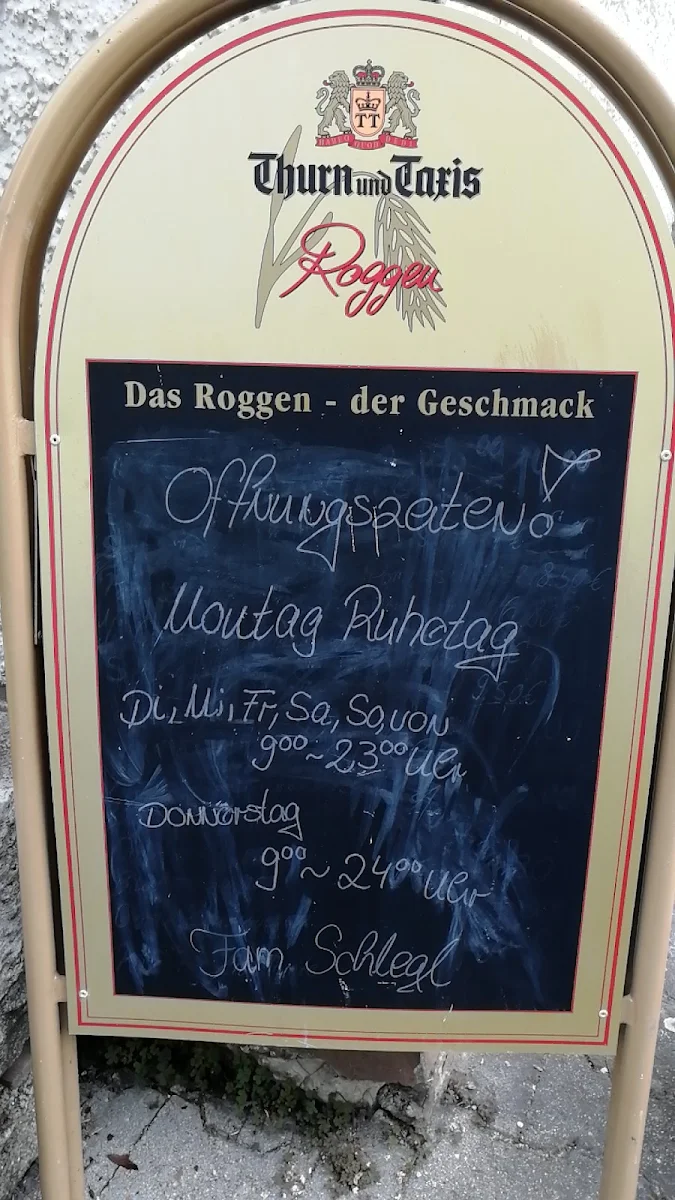 TT
HABEO QUOD DEDI
Thurn und Taxis
Roggen
Das Roggen - der Geschmack
Öffnungszeiten!
Montag Ruhetag
Di, Mi, Fr, Sa, So, von
9⁰⁰ ~ 23⁰⁰ Uhr
Donnerstag
9⁰⁰ ~ 24⁰⁰ Uhr
Fam Schlegl